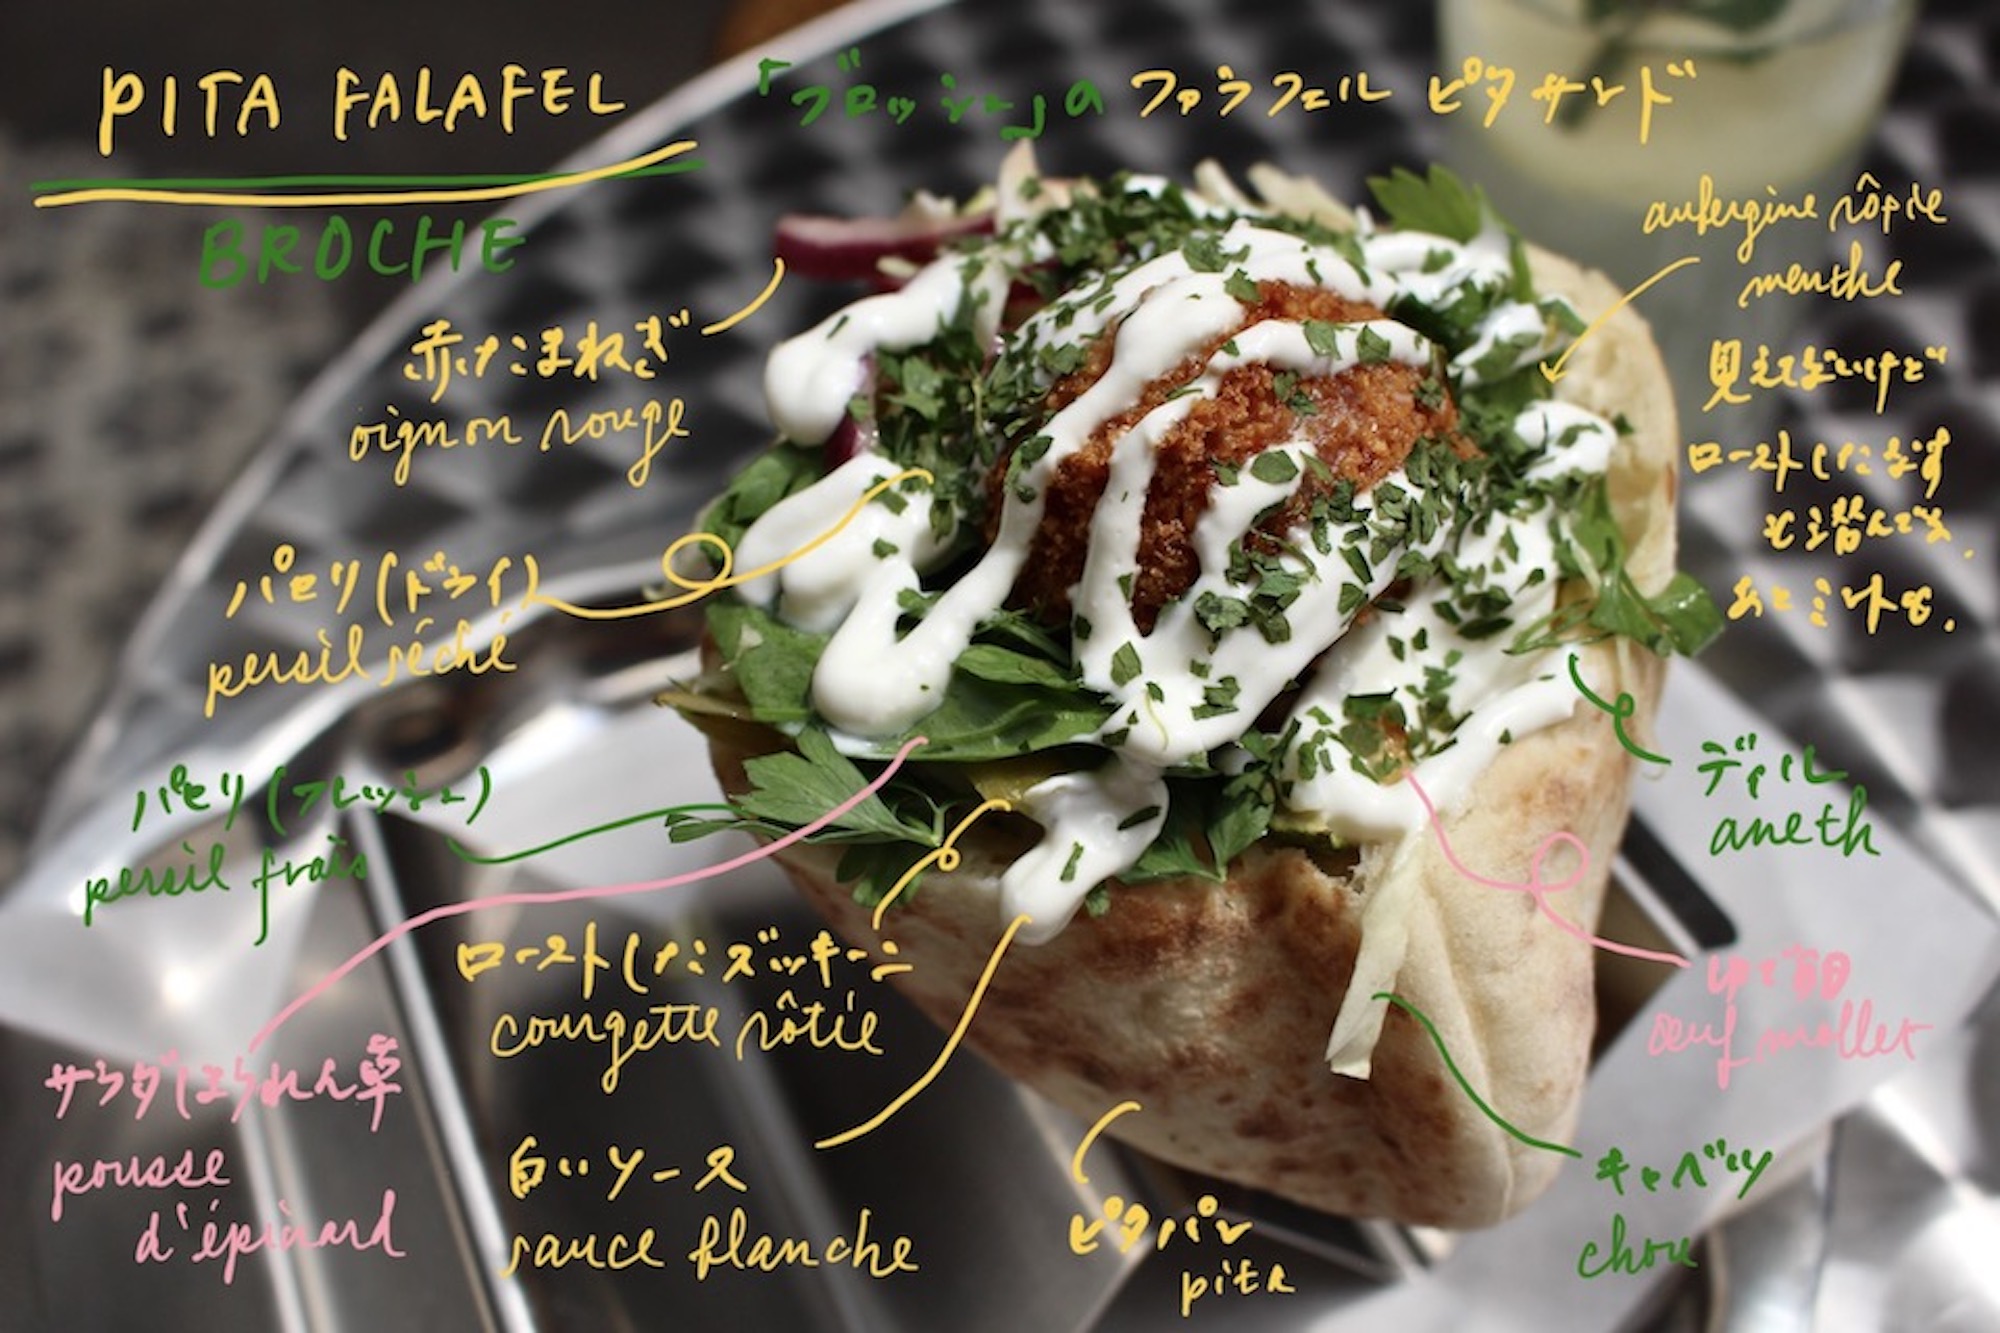 PITA FALAFEL
「ブロッシュ」の ファラフェル ピタサンド
BROCHE
aubergine rôtie
menthe
見えてないけど
ローストしたなす
も潜んでる.
あとミントも.
赤たまねぎ
oignon rouge
パセリ(ドライ)
persil séché
パセリ(フレッシュ)
persil frais
ディル
aneth
ローストしたズッキーニ
courgette rôtie
ゆで卵
œuf mollet
サラダほうれん草
pousse
d'épinard
白いソース
sauce blanche
ピタパン
pita
キャベツ
chou